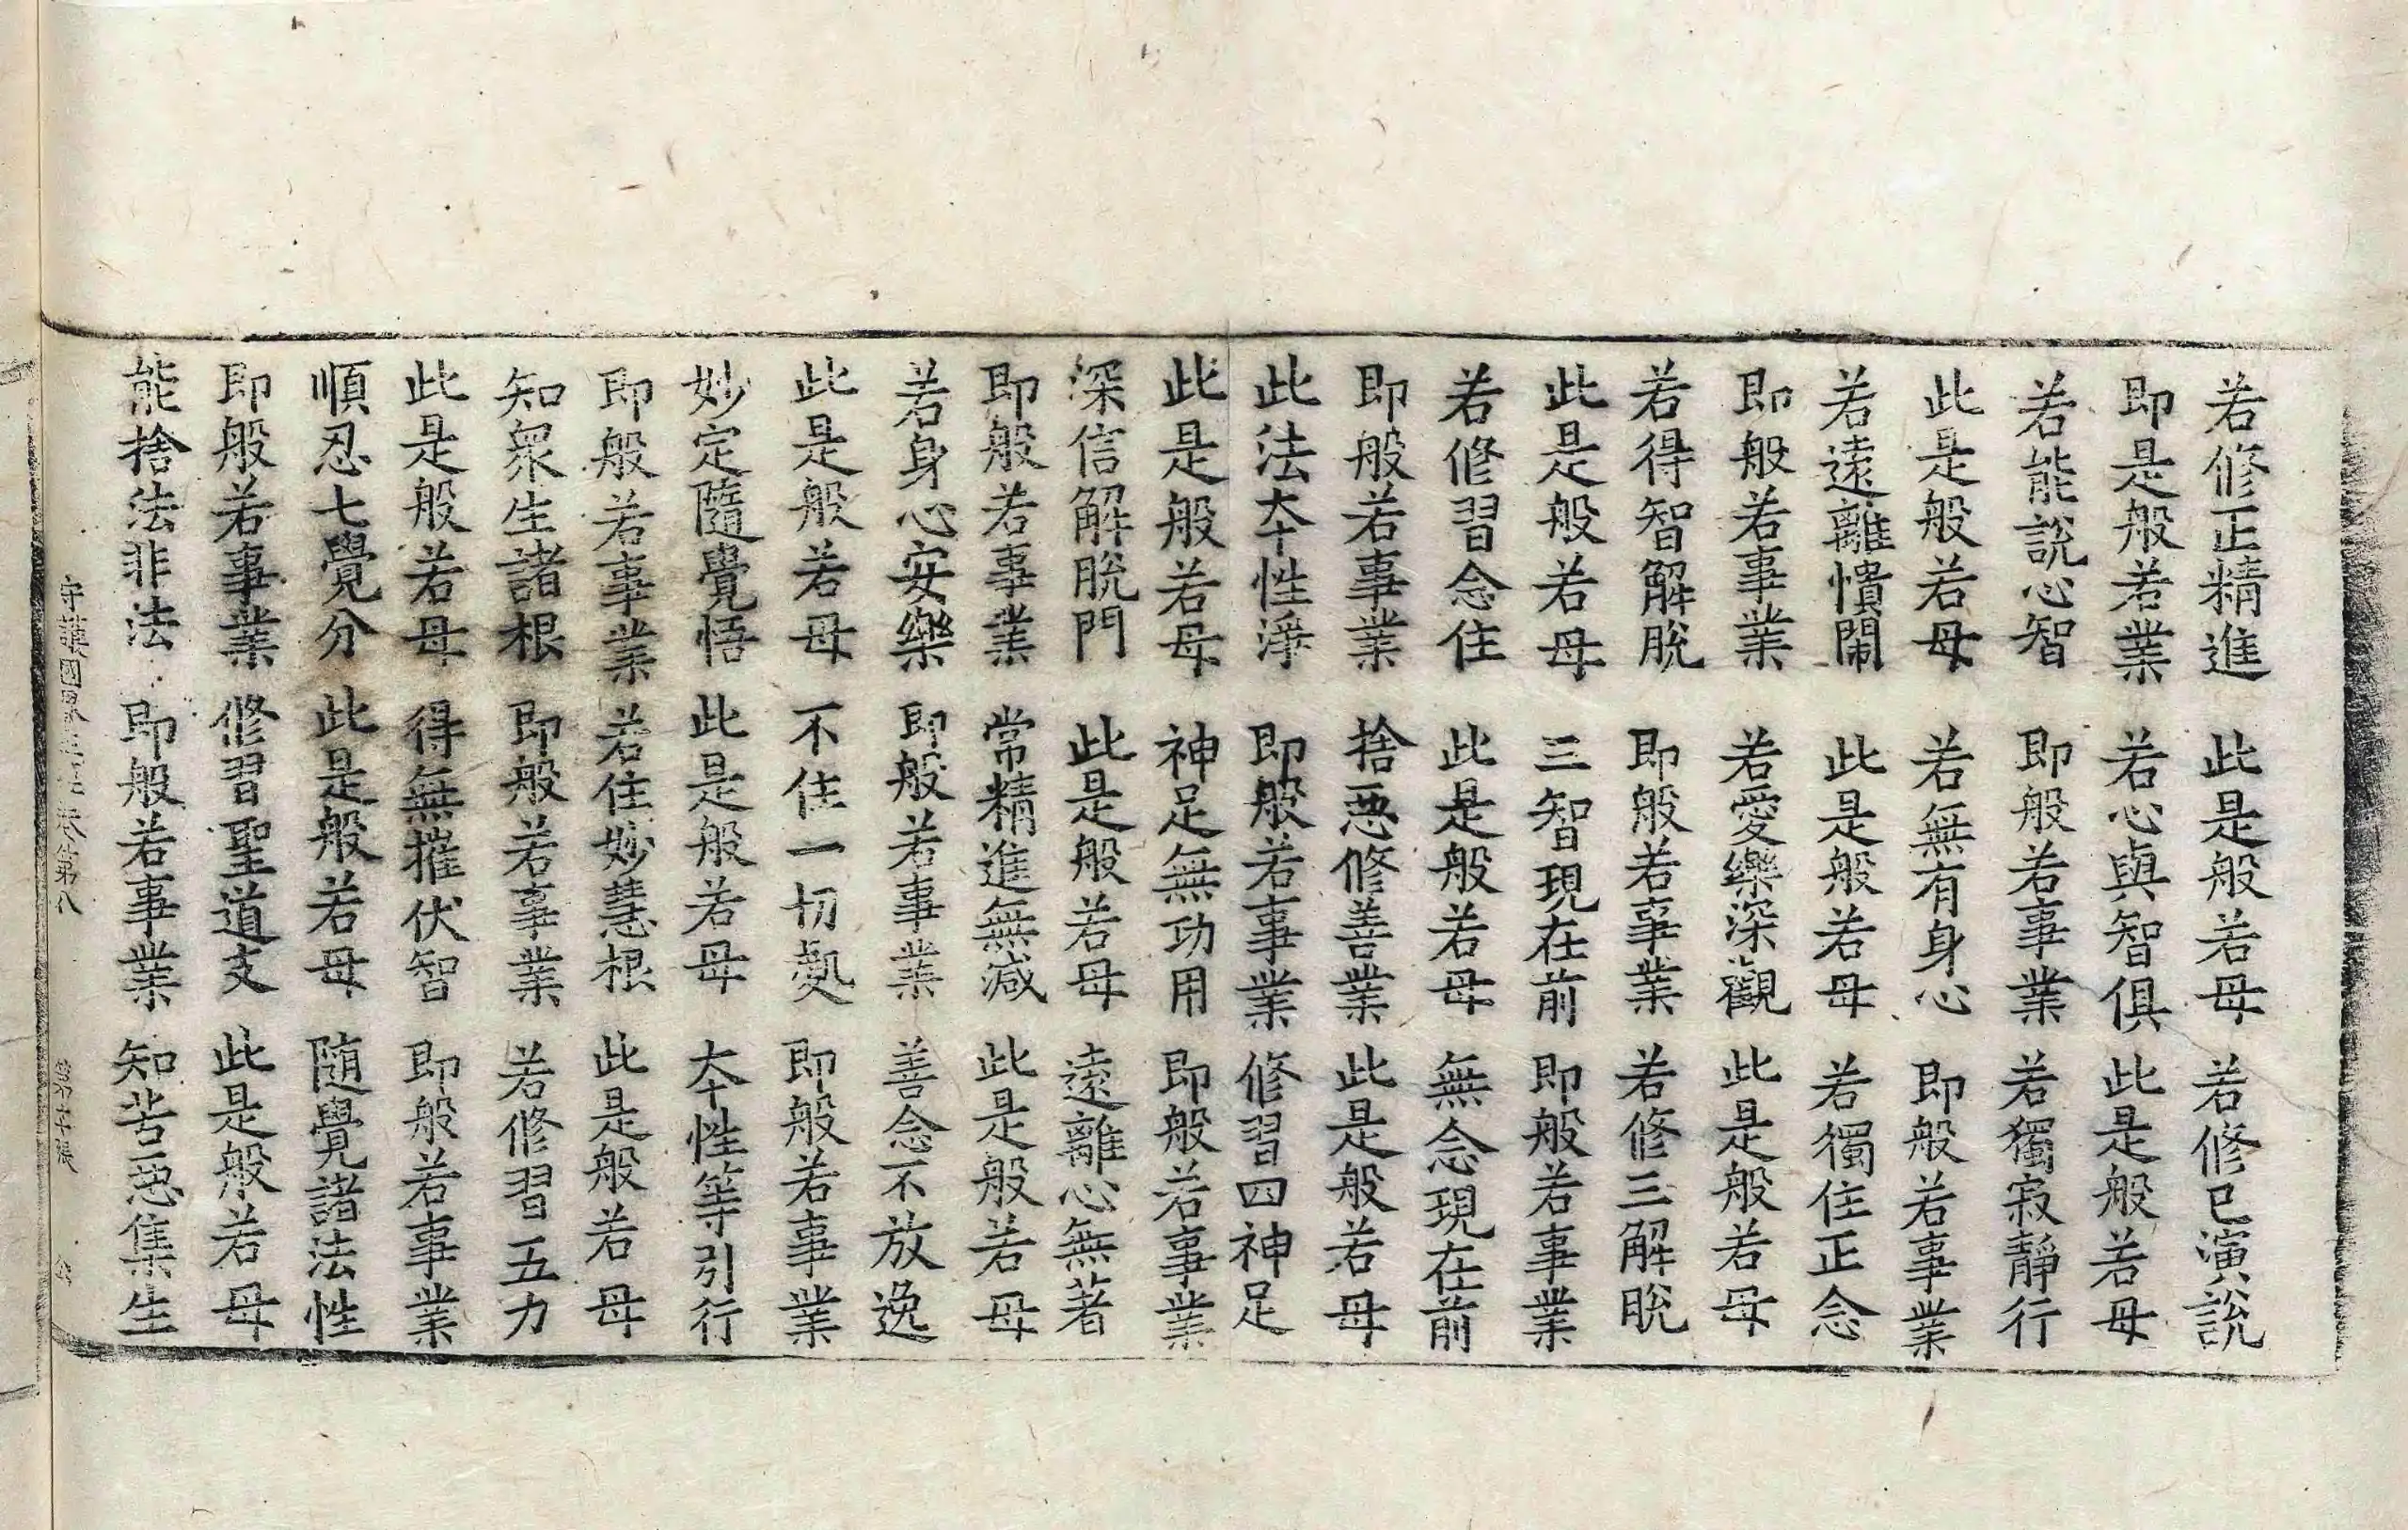 若修正精進　此是般若母　若修已演說
即是般若業　若心與智俱　此是般若母
若能說心智　即般若事業　若獨寂靜行
此是般若母　若無有身心　即般若事業
若遠離憒閙　此是般若母　若獨住正念
即般若事業　若愛樂深觀　此是般若母
若得智解脫　即般若事業　若修三解脫
此是般若母　三智現在前　即般若事業
若修習念住　此是般若母　無念現在前
即般若事業　捨惡修善業　此是般若母
此法本性淨　即般若事業　修習四神足
此是般若母　神足無功用　即般若事業
深信解脫門　此是般若母　遠離心無著
即般若事業　常精進無减　此是般若母
若身心安樂　即般若事業　善念不放逸
此是般若母　不住一切處　即般若事業
妙定隨覺悟　此是般若母　本性等引行
即般若事業　若住妙慧根　此是般若母
知衆生諸根　即般若事業　若修習五力
此是般若母　得無摧伏智　即般若事業
順忍七覺分　此是般若母　隨覺諸法性
即般若事業　修習聖道支　此是般若母
能捨法非法　即般若事業　知苦惡集生
守護國界主　卷第八